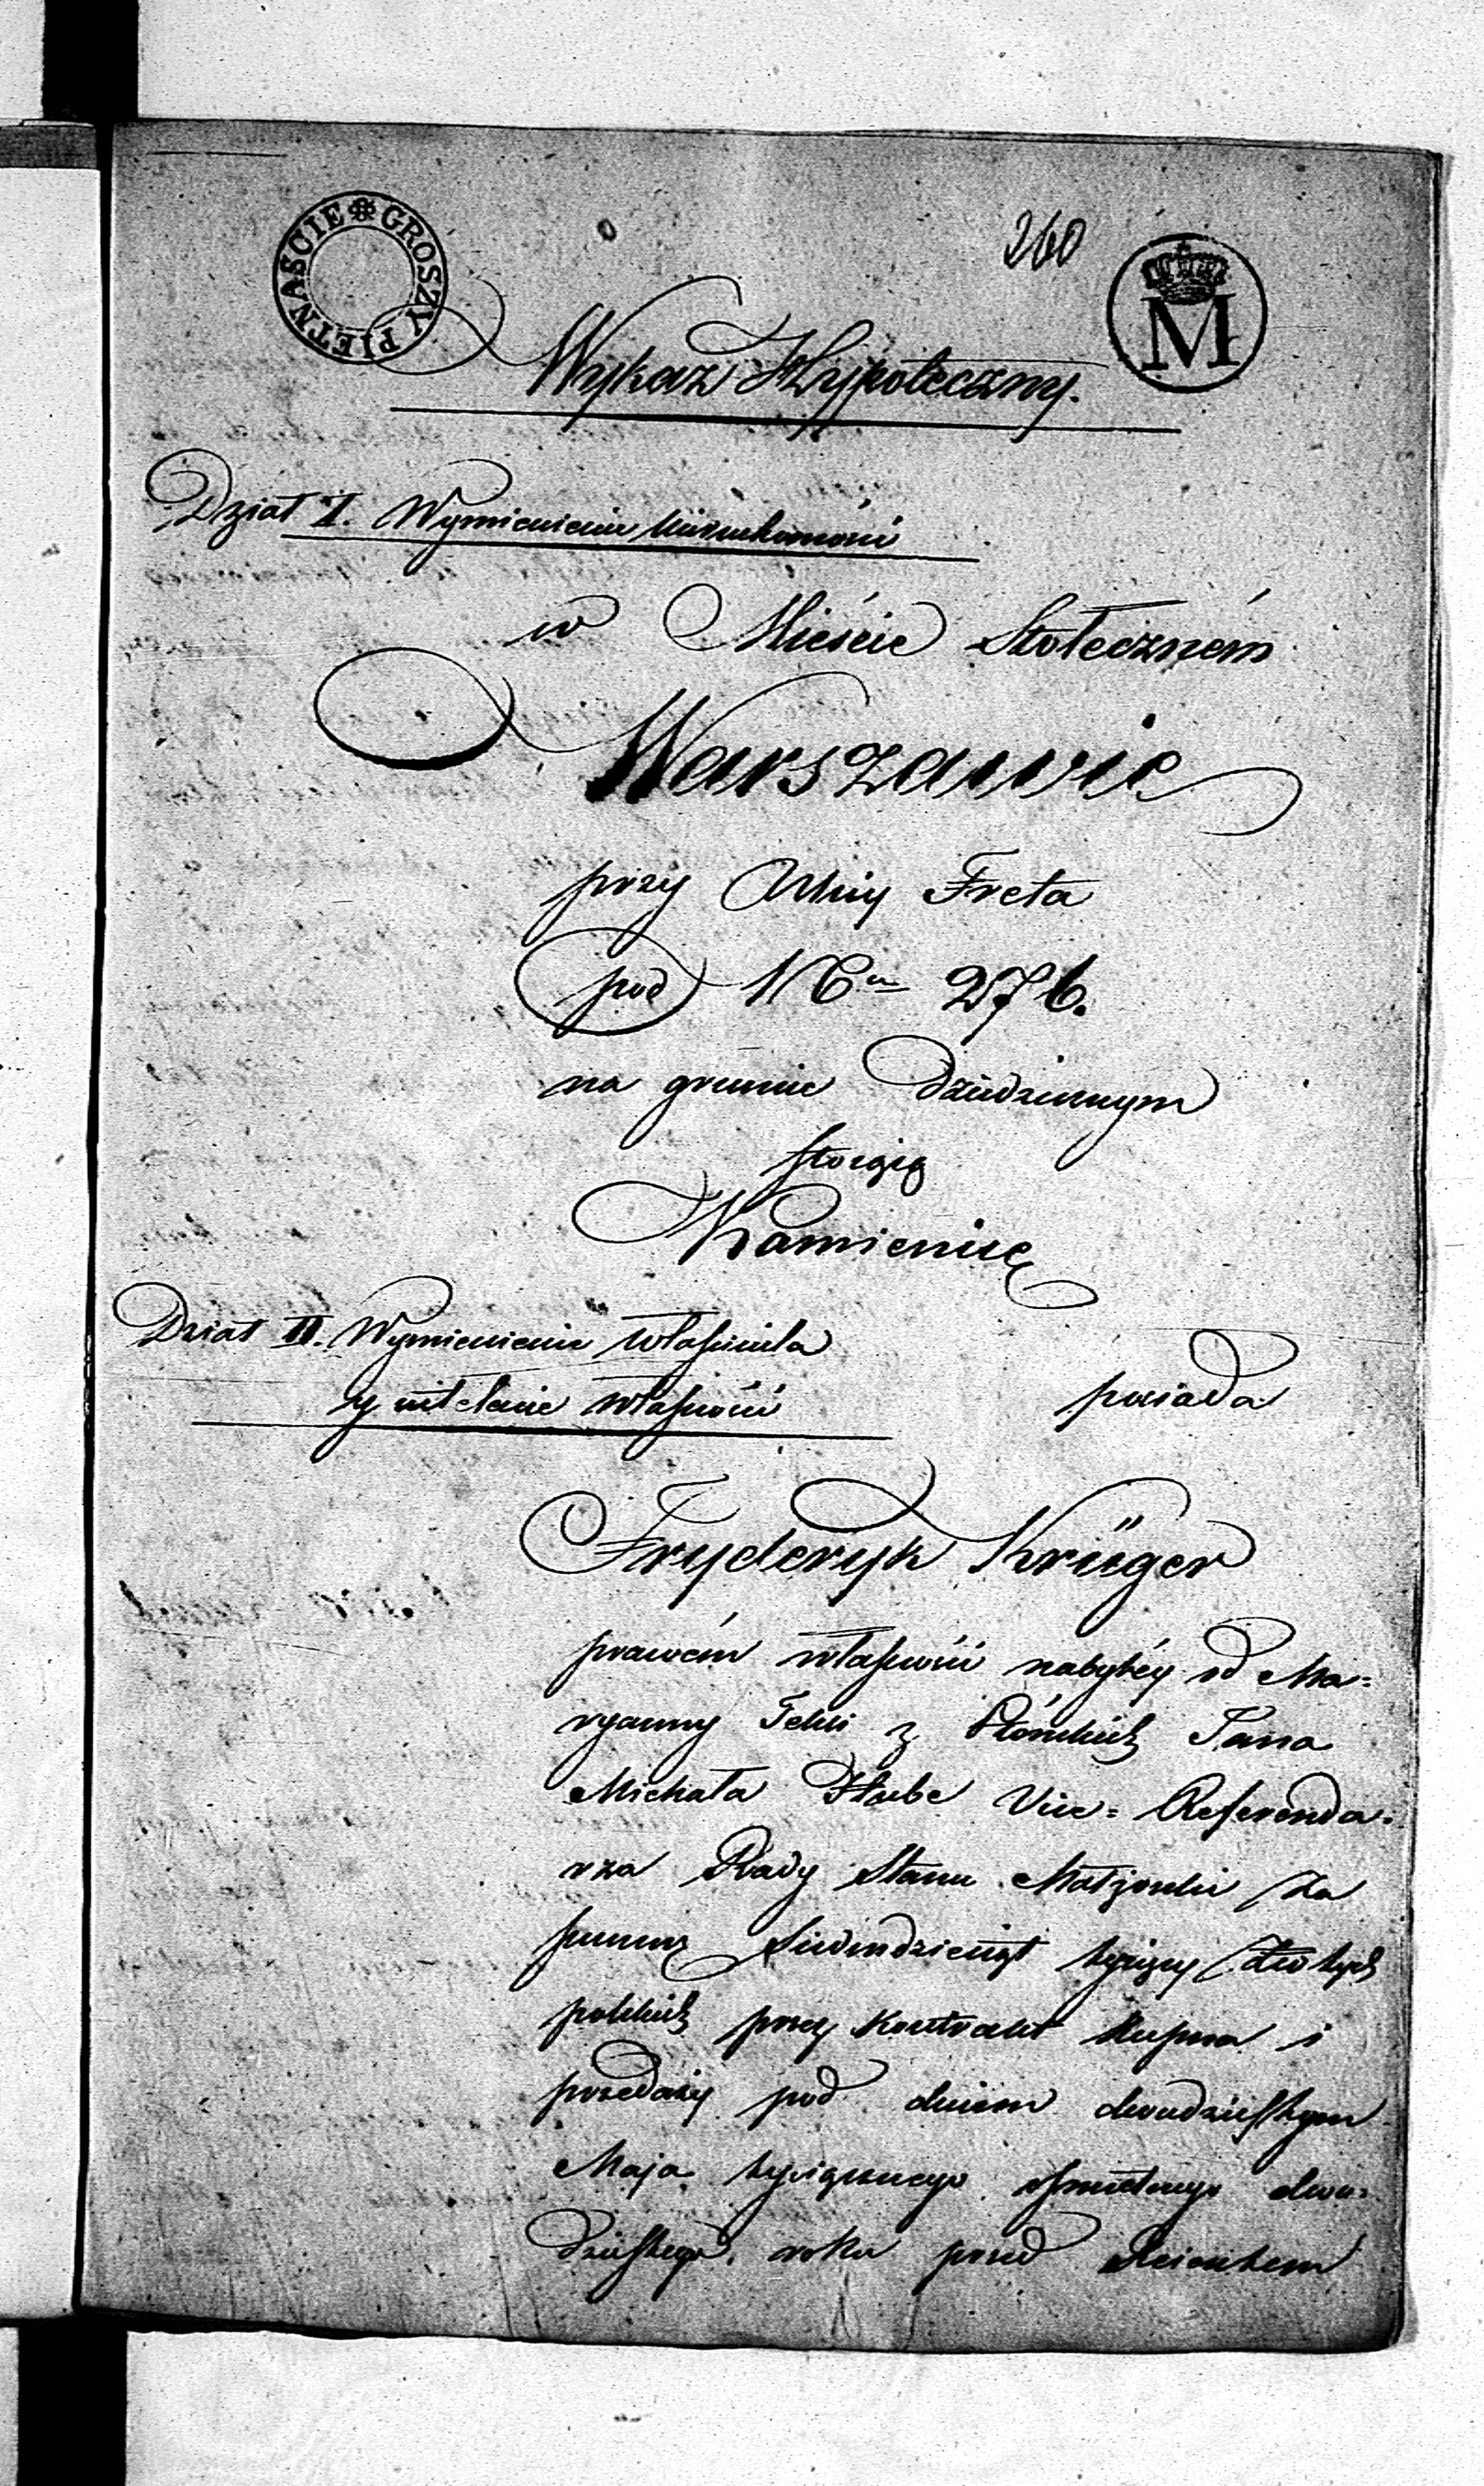 GROSZY PIETNAŚCIE
260
M
Wykaz Hypoteczny.
Dział I. Wymienienie Nieruchomości
w Mieście Stołeczném
Warszawie
przy Ulicy Freta
pod N 276.
na gruncie dziedzicznym
stoiącą
Kamienicę
Dział II. Wymienienie Właściciela
y własności
posiada
Fryderyk Krüger
prawem własności nabytéy od Ma=
ryanny Tekli z Jana
Michała Hube Vice=Referenda=
rza Rady Stanu Małżonki za
summę Siedmdziesiąt tysięcy Złotych
polskich przez Kontrakt Kupna i
przedaży pod dniem dwudziestym
Maja tysiącznego osmsetnego dwu=
dziestego roku przed Reientem